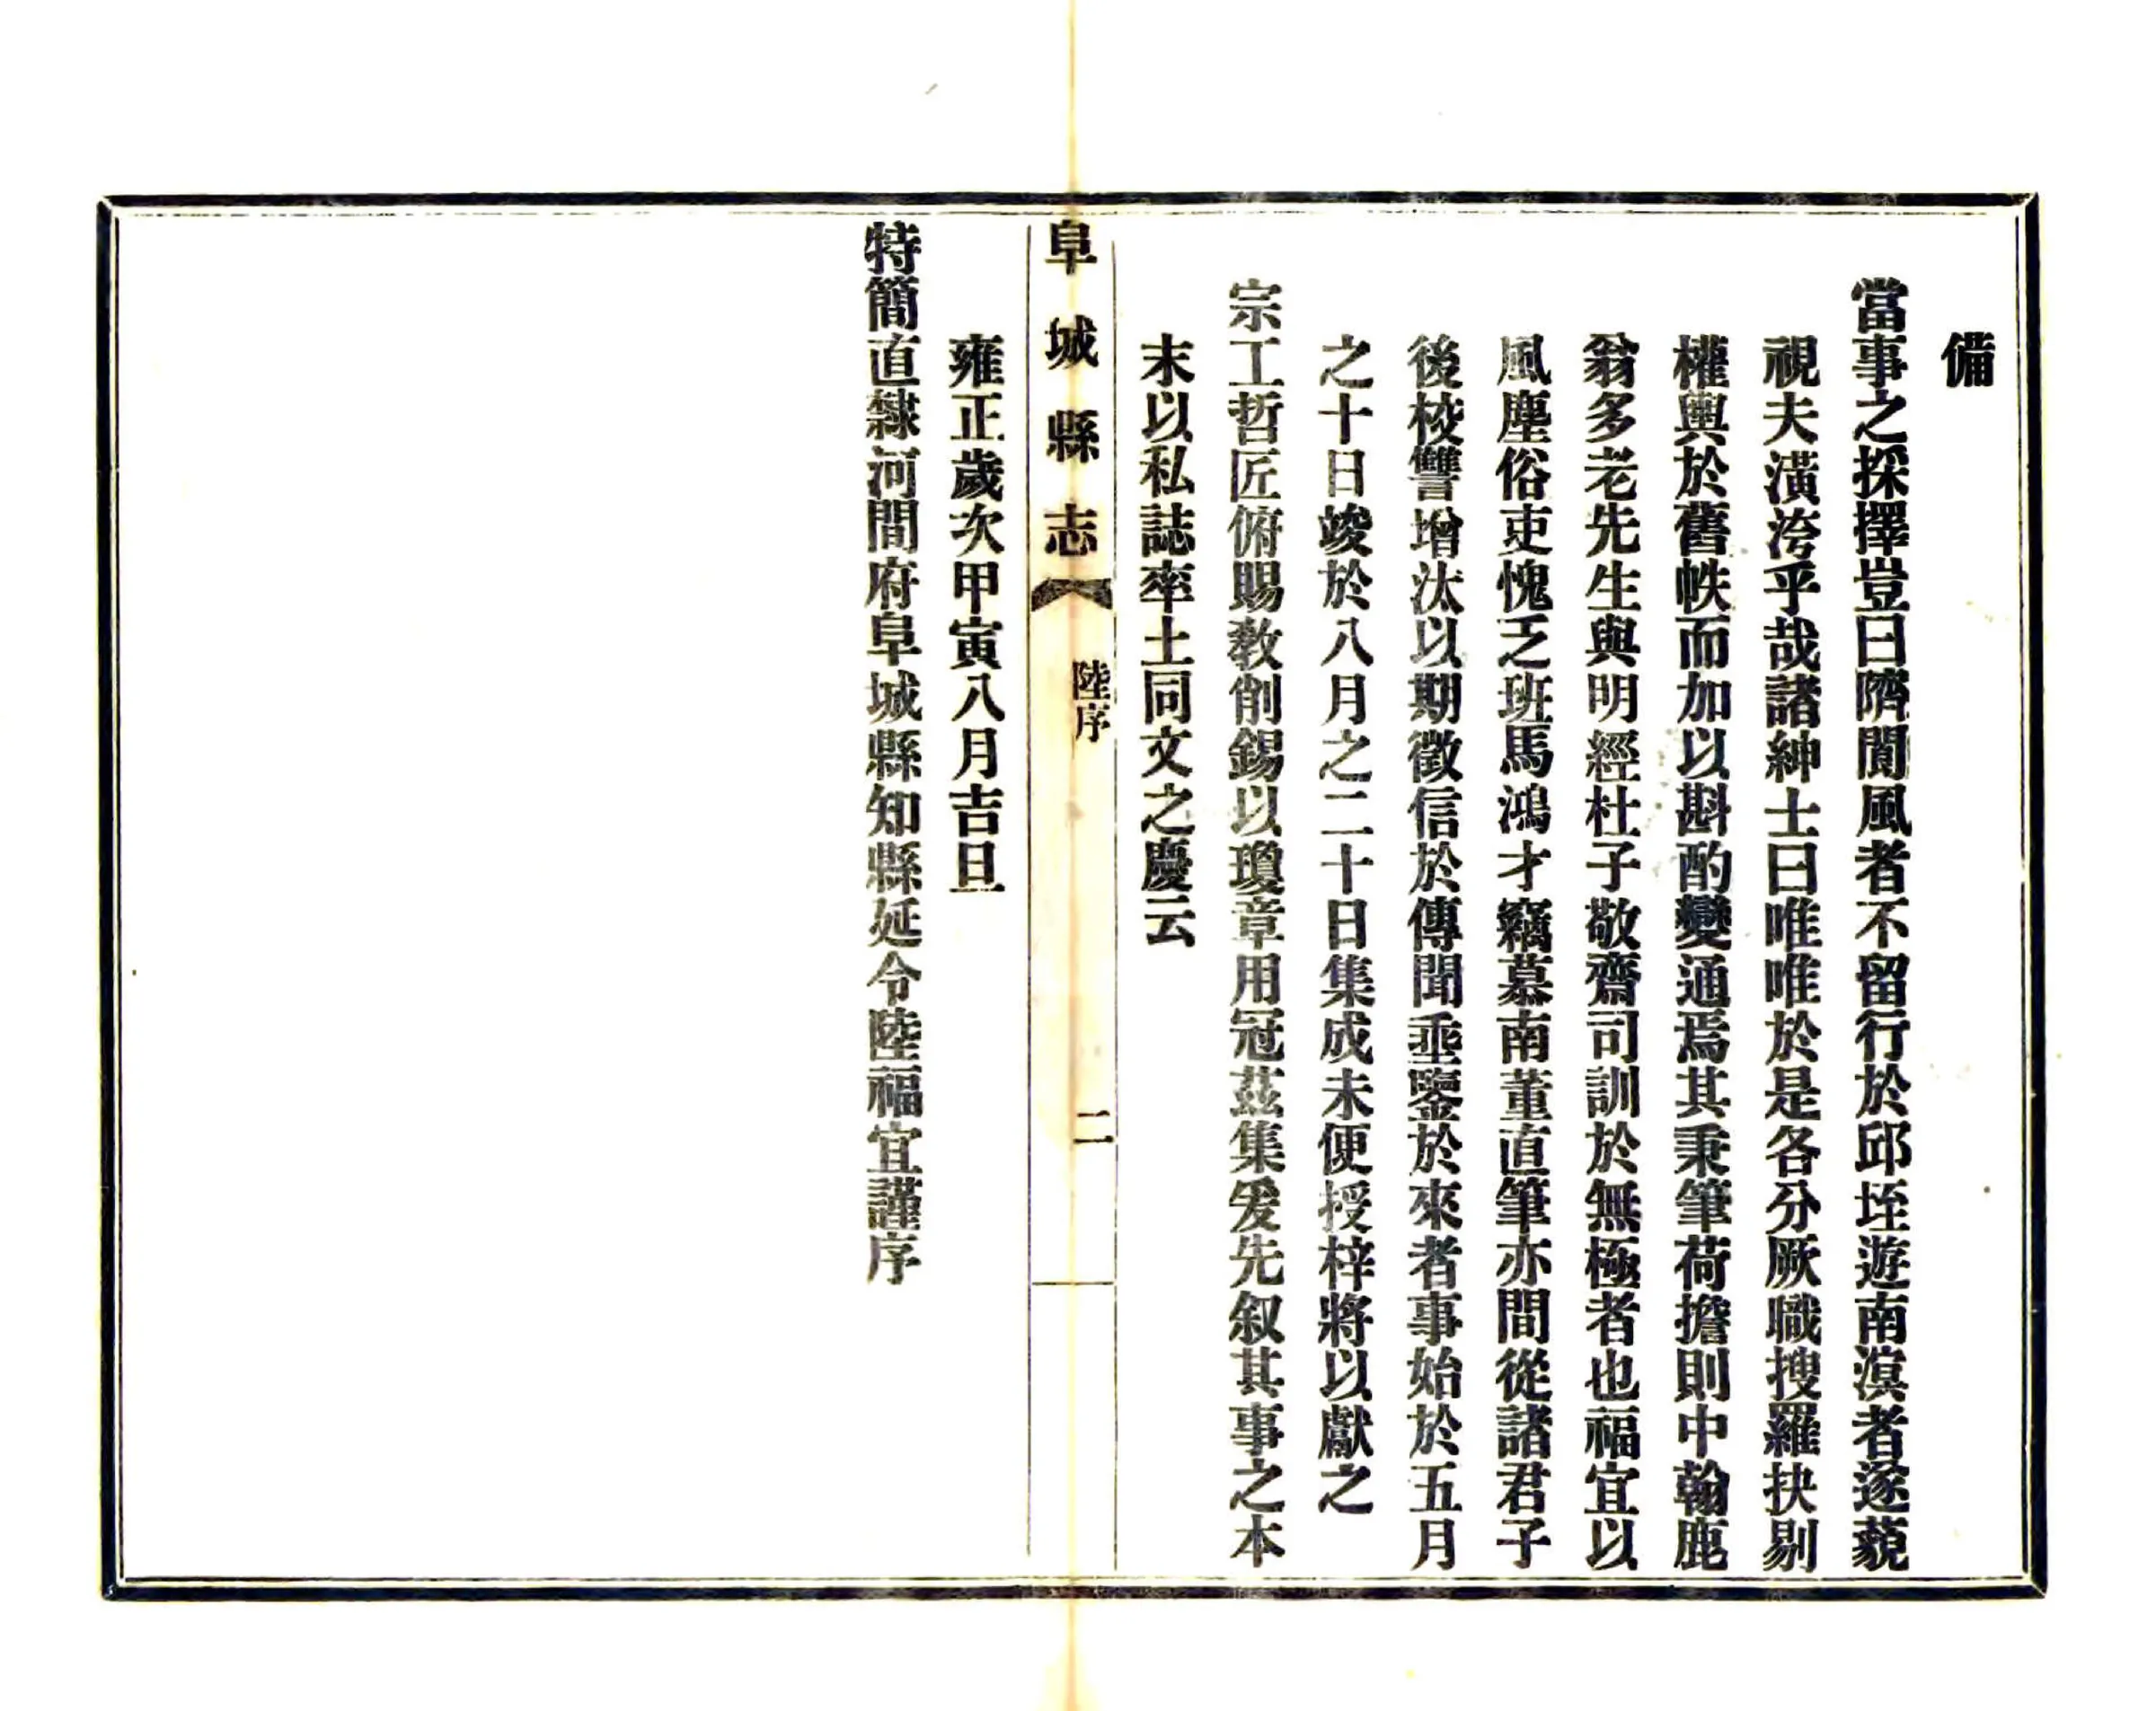 備
當事之採擇豈曰隮閬風者不留行於邱垤遊南溟者遂藐
視夫潢洿乎哉諸紳士曰唯唯於是各分厥職搜羅抉剔
權輿於舊帙而加以斟酌變通焉其秉筆荷擔則中翰鹿
翁多老先生與明經杜子敬齋司訓於無極者也福宜以
風塵俗吏愧乏班馬鴻才竊慕南董直筆亦間從諸君子
後校讐增汰以期徵信於傳聞垂鑒於來者事始於五月
之十日竣於八月之二十日集成未便授梓將以獻之
宗工哲匠俯賜教削錫以瓊章用冠茲集爰先叙其事之本
末以私誌率土同文之慶云
阜城縣志
陸序
二
雍正歲次甲寅八月吉旦
特簡直隸河間府阜城縣知縣延令陸福宜謹序